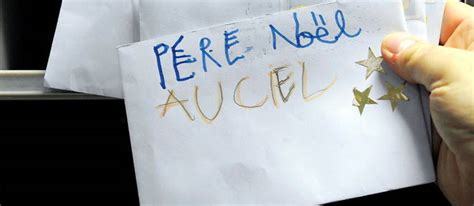 PÉRE Noël
AUCIEL